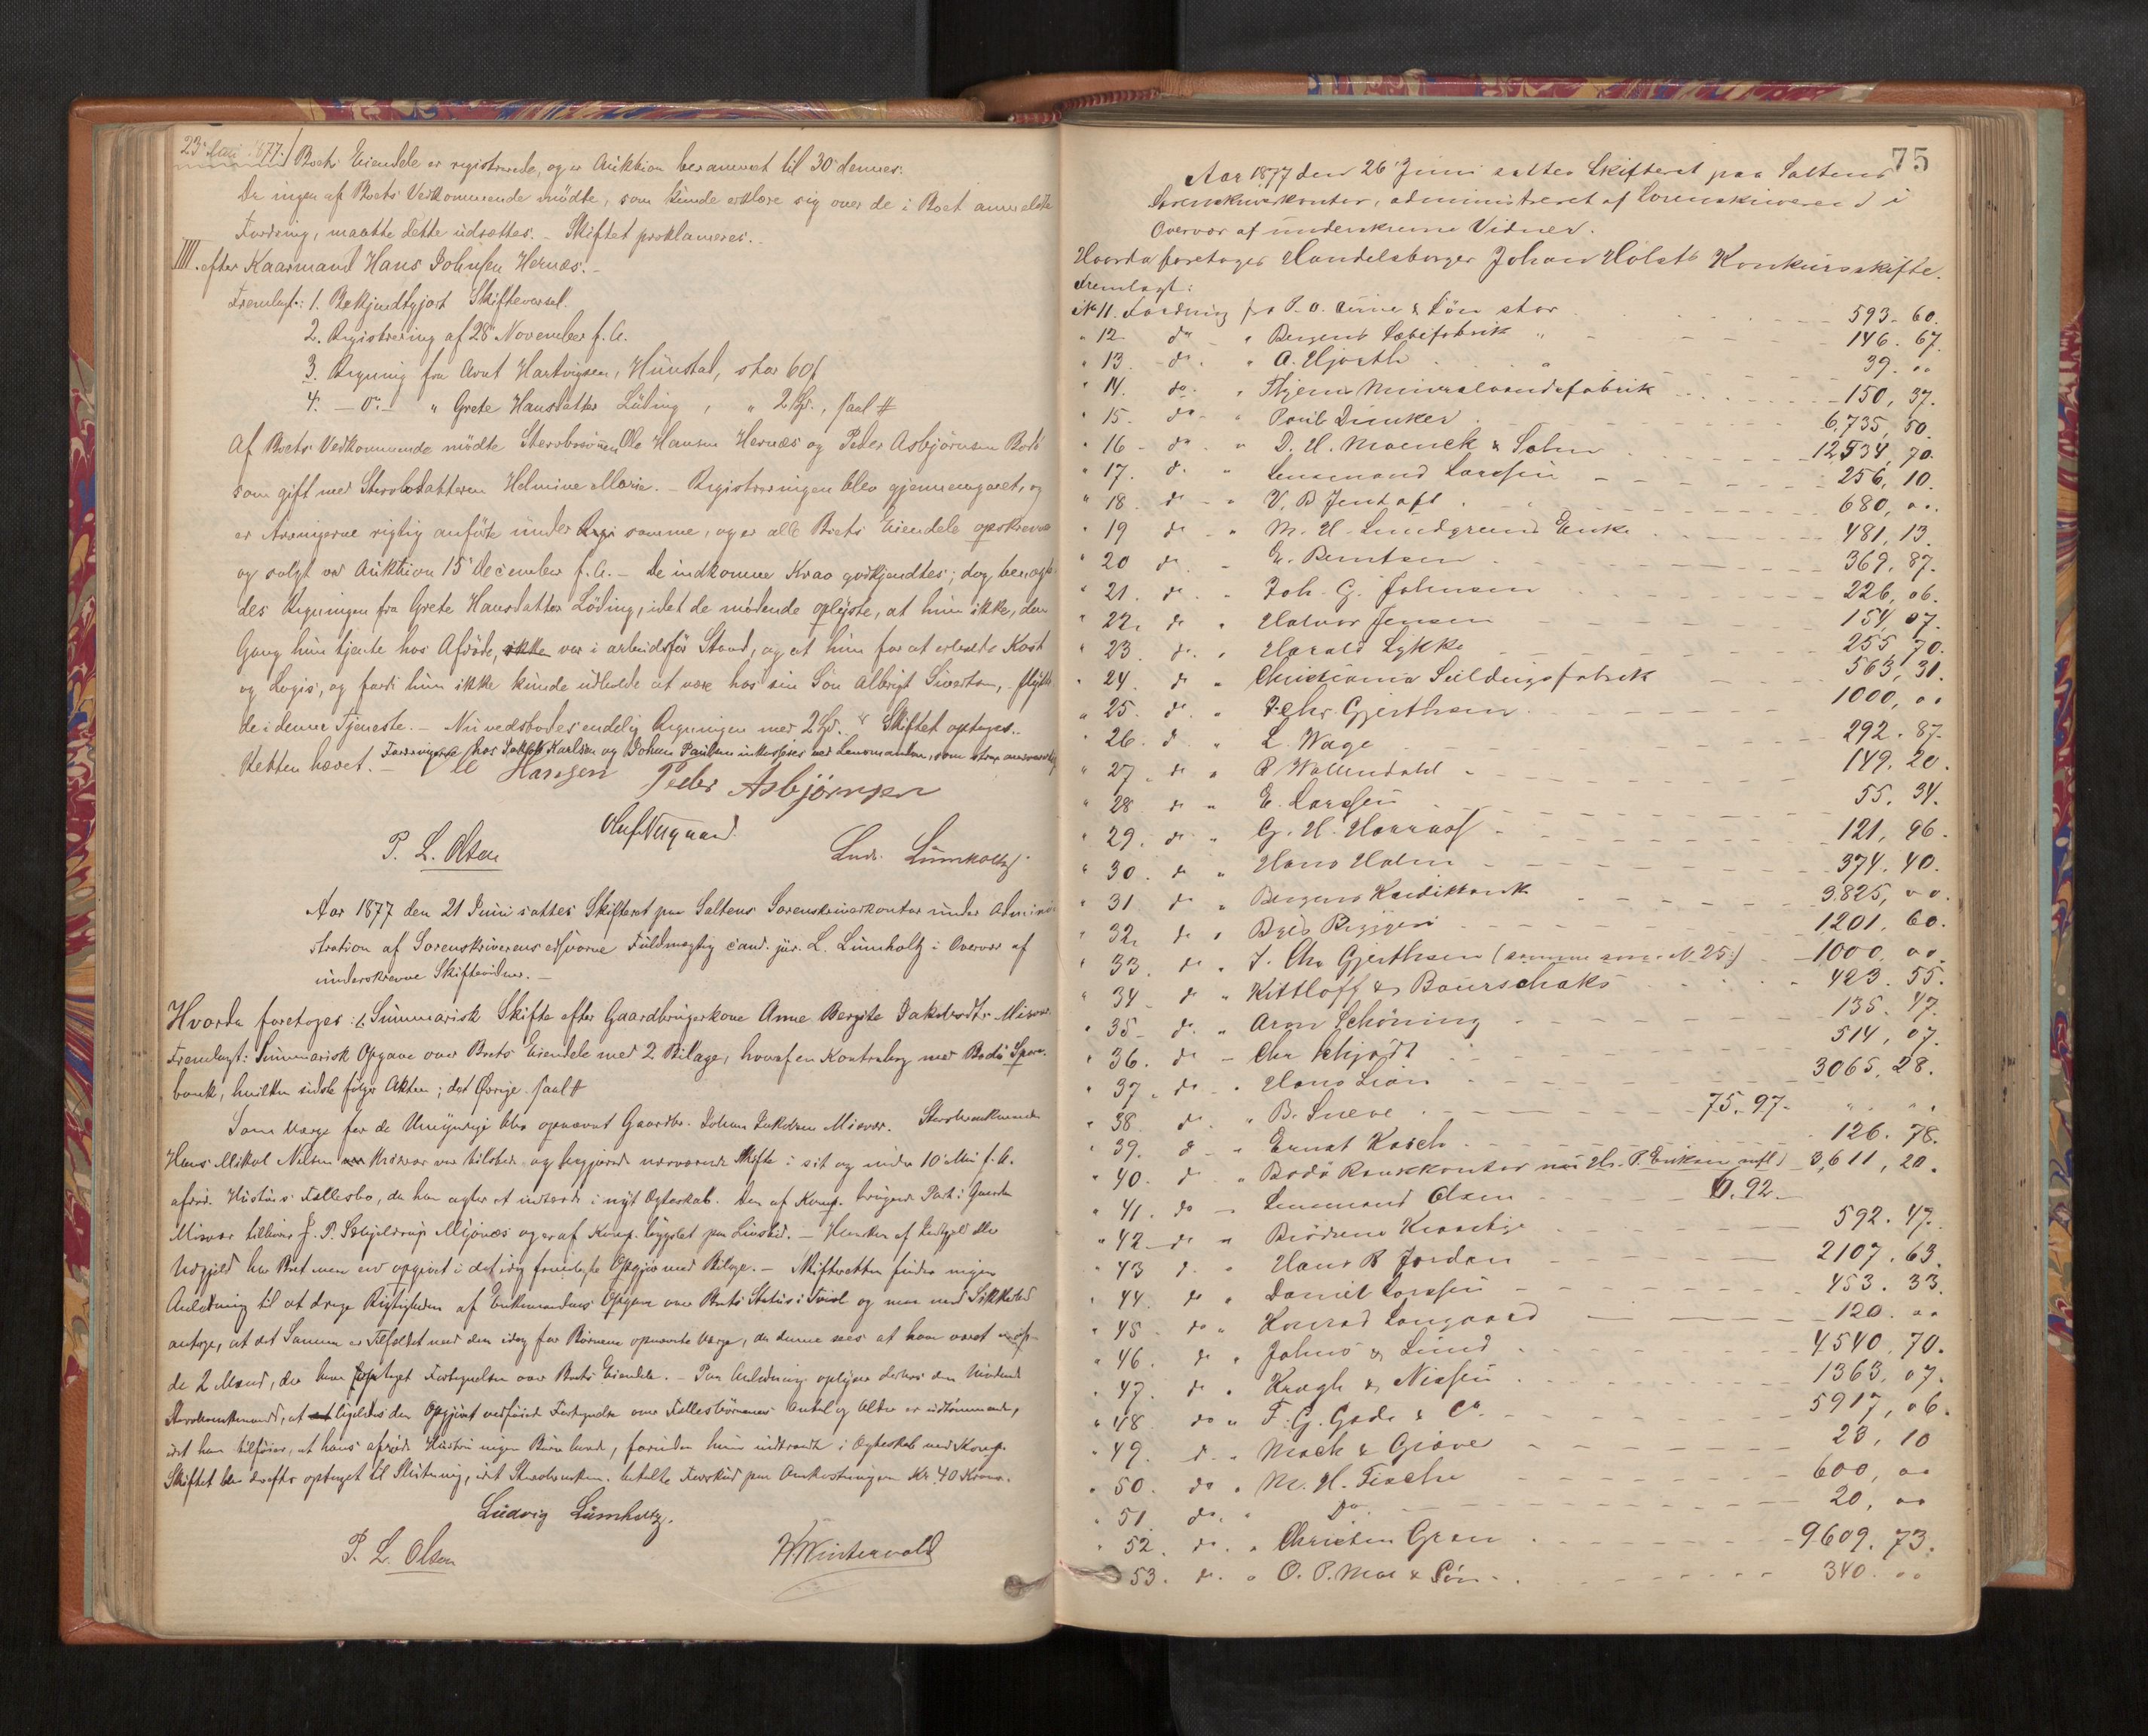 23 Mai 1877. Boets Eiendele er registrerede, og er Auktion berammet til 30 dennes.
Da ingen af Boets Vedkommende mødte, som kunde erklære sig over de i Boet anmeldte
Fordring, maatte dette udsættes. – Skiftet proklameres. –
IIII. efter Kaarmand Hans Johnsen Hernæs. –
Fremlagt: 1. Bekjendtgjort Skiftevarsel.
2. Registrering af 28 November f. A.
3. Regning fra Arnt Hartvigsen, Hunstad, stor 60
4. – Do – " Grete Hansdatter Løding, " 2 Spd., saal #
Af Boets Vedkommende mødte Stervbosønnen Ole Hansen Hernæs og Peder Asbjørnsen Bodø
som gift med Stervbodatteren Helmine Marie. – Registreringen blev gjennemgaaet, og
er Arvingerne rigtig anførte under samme, og er alle Boets Eiendele opskrevne
og solgt ved Auktion 15 December f. A. – De indkomne Krav godkjendtes; dog benæg-
des Regningen fra Grete Hansdatter Løding, idet de mødende oplyste, at hun ikke, den
Gang hun tjente hos Afdøde, ikke var i arbeidsfør Stand, og at hun for at erholde Kost
og Logis, og fordi hun ikke kunde udholde at være hos sin Søn Albrigt Sivertsen, flytte
de i denne Tjeneste. – Nu vedtodes endelig Regningen med 2 Spd. Skiftet optages.
Retten hævet. – Fordringerne hos Jakob Karlsen og Johan Paulsen inkasseres ved Lensmanden, som strax
Ole Hansen Peder Asbjørnsen
Oluf Nergaard
P. L. Olsen Ludv. Lumholtz
Aar 1877 den 21 Juni sattes Skifteret paa Saltens Sorenskriverkontor under Admini-
stration af Sorenskriverens edsvorne Fuldmægtig cand. jur. L. Lumholtz i Overvær af
underskrevne Skiftevidner. –
Hvorda foretoges: 1. Summarisk Skifte efter Gaardbrugerkone Anne Bergite Jakobsdtr. Misvær.
Fremlagt: Summarisk Opgave over Boets Eiendele med 2 Bilage, hvoraf en Kontrabog med Bodø Spare-
bank, hvilken sidste følger Akten; det Øvrige saal #
Som Værge for de Umyndige blev opnævnt Gaardbr. Johan Jakobsen Misvær. Stervboenkemanden
Hans Mikal Nilsen Misvær var tilstede og begjærede nærværende Skifte i sit og under 10 Mai f. A.
afdød. Hustrus Fællesbo, da han agter at indtræde i nyt Ægteskab. Den af Komp. brugende Part i Gaarden
Misvær tilhører J. P. Schjeldrup Misvær og er af Komp. bygslet paa Livstid. –
Udgjæld har Boet mere end opgivet i det idag fremlagte Opgjør med Bilage. – Skifteretten finder ingen
Anledning til at drage Rigtigheden af Enkemandens Opgave over Boets Status i Tvivl og man med Sikkerhed
antage, at det Samme er Tilfældet med den idag for Børnene opnævnte Værge, da denne sees at have været
de 2 Mænd, der have optaget Fortegnelsen over Boets Eiendele. – Paa Anledning oplyser derhos den mødende
Stervboenkemand, at ligeledes den Opgjøret vedføiede Fortegnelse over Fællesbørnenes Antal og Alder er udtømmende,
idet han tilføier, at hans afdøde Hustru ingen Børn havde, forinden hun indtraadte i Ægteskab med Komp.
Skiftet blev derefter optaget til Slutning, idet Stervboenkem. betalte Forskud paa Omkostningen Kr. 40 Kroner.
Ludvig Lumholtz.
P. L. Olsen W. Wintervold
75
Aar 1877 den 26 Juni sattes Skifteret paa Saltens
Sorenskriverkontor, administreret af Sorenskriveren i
Overvær af underskrevne Vidner.
Hvorda foretoges Handelsborger Johan Holsts Konkursskifte.
Fremlagt:
No 11. Fordring fra P. O. & Søn stor 593. 60.
" 12 do " Bergens Sæbefabrik " 146. 67.
" 13 do " A. Hjorth " 39. 00
" 14. do " Mineralvandsfabrik 150, 37.
" 15. do " Poul Duncker 6,735, 50.
" 16 do " D. H. Moenck & Sohn 12,534, 70.
" 17. do " Lensmand Larssen 256, 10.
" 18. do " V. B. Jentoft 680, 00.
" 19 do " M. H. Lundgreens Enke 481, 13.
" 20 do " E. Berntsen 369, 87.
" 21. do " Joh. G. Johnsen 226, 06.
" 22. do " Halvor Jensen 154, 07.
" 23 do " Harald Lykke 255, 70.
" 24. do " Christiania Seildugsfabrik 563, 31.
" 25. do " J. Chr. Gjerthsen 1000, 00
" 26. do " L. Wage 292. 87.
" 27. do " P. Wallendahl 149. 20.
" 28 do " E. Larssen 55. 34.
" 29. do " G. H. 121, 96.
" 30. do " Hans Holm 374. 40.
" 31 do " Bergens Kreditbank 3.825, 00.
" 32. do " Brødr. Bryggeri 1201. 60.
" 33. do " J. Chr Gjerthsen (samme som No 25:) 1000. 00.
" 34 do " Kittloff & Bourschaks 423. 55.
" 35 do " Aron Schöning 135. 47.
" 36. do – Chr Schjødt 514, 07.
" 37. do " Hans Lian 3065, 28.
" 38. do " B. Sneve 75. 97. " "
" 39. do " Ernst Kasch 126. 78.
" 40. do " Bodø Bankkontor ved Hr. P. Eriksen 3,611, 20.
" 41. do – Lensmand Olsen 92. –
" 42 do " Brødrene 592. 47.
" 43 do " Hans B Jordan 2107. 63.
" 44. do " Daniel Larssen 453. 33.
" 45 do " Konrad Langaard 120. 00
" 46. do " Johns & Lund 4540. 70.
" 47. do " Krogh & Nissen 1363, 07.
" 48 do " F. G. Gade & Co. 5917, 06.
" 49. do " Mack & Giæver 23, 10
" 50. do " M. H. Fischer 600, 00
" 51. do. " Do 20, 00
" 52. do. " Christen Gran 9609. 73.
53. do. " O. P. Moe & Søn 340. 00